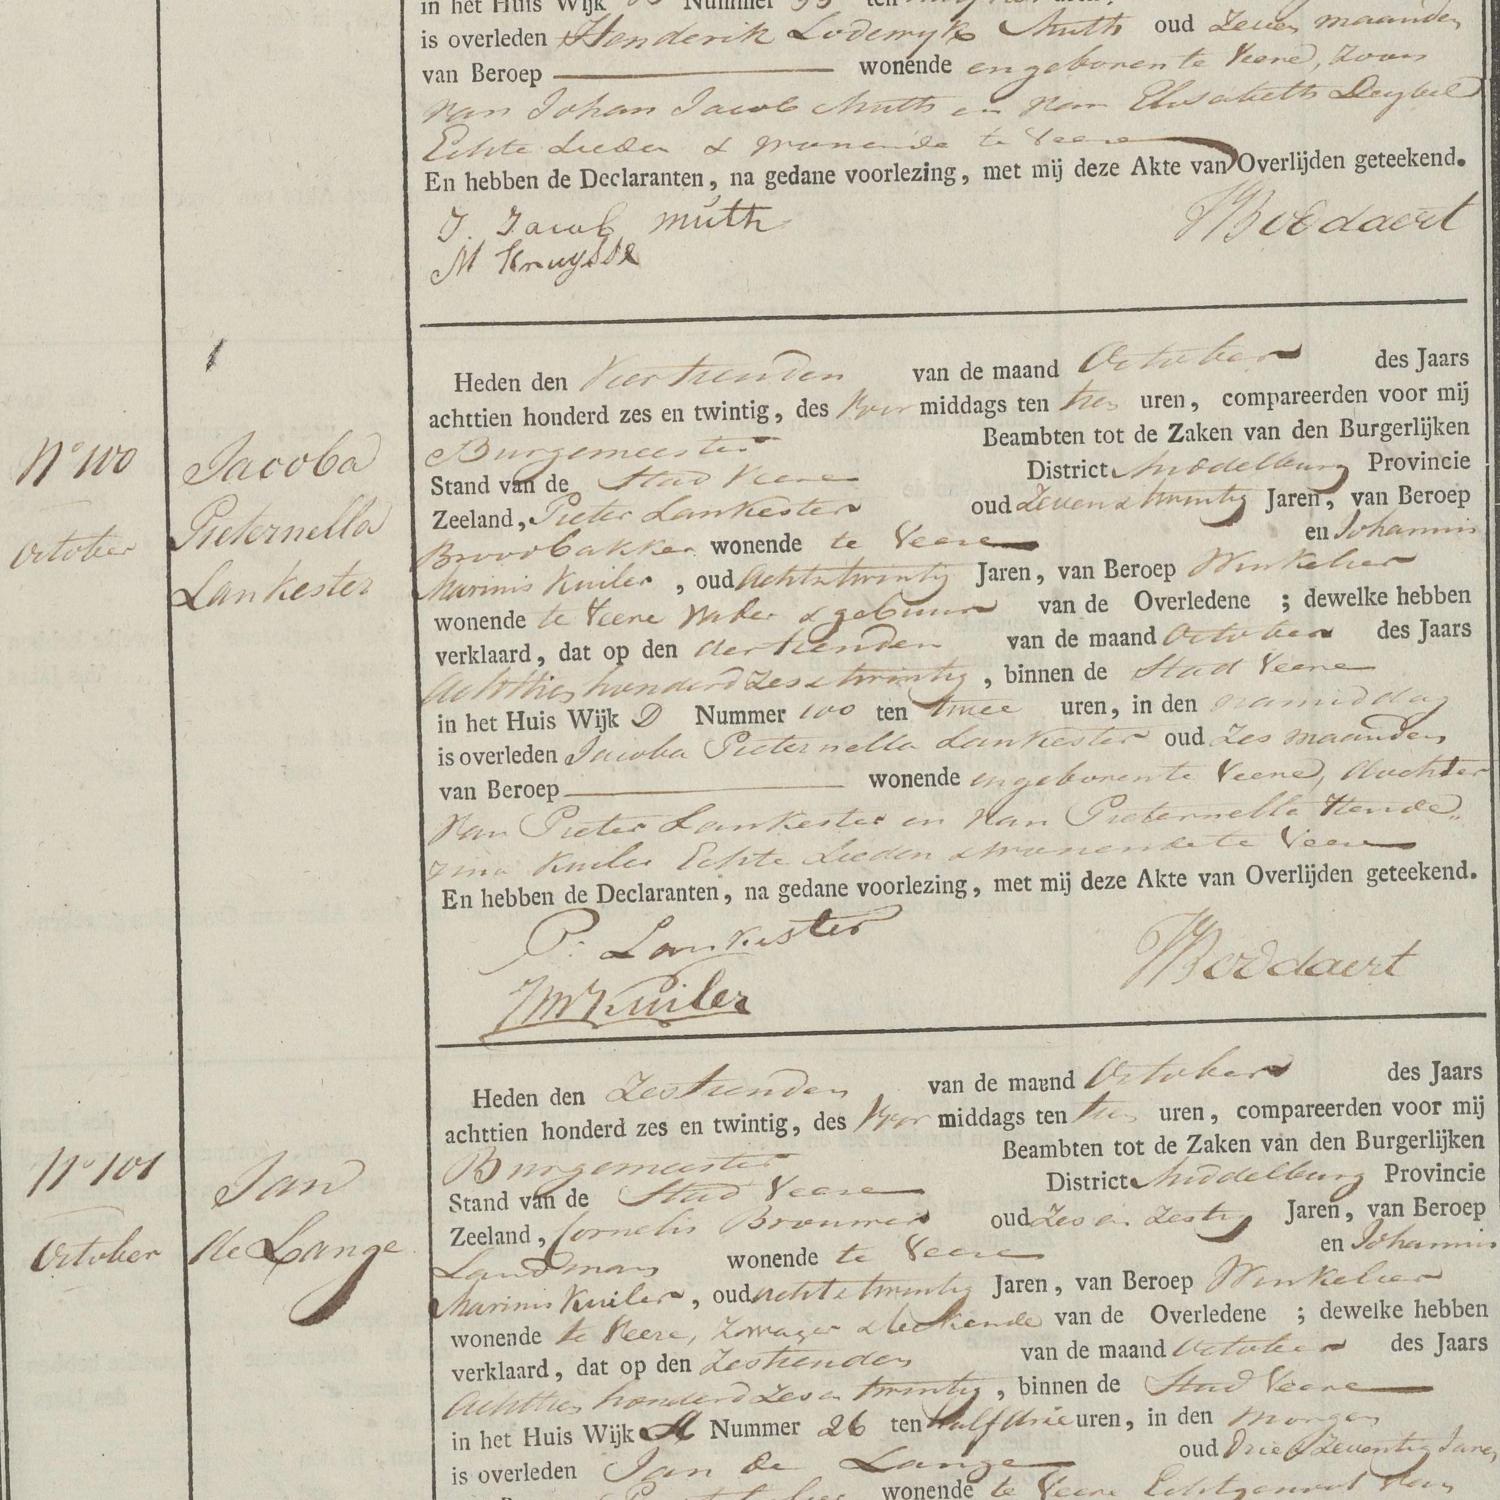 in het Huis Wijk
Nummer
is overleden Henderik Lodewyk Muth oud Zeven maanden
van Beroep wonende en geboren te Veere, Zoon
van Johan Jacob Muth en van Elisabeth Deybel
Echte Lieden & wonende te Veere
En hebben de Declaranten, na gedane voorlezing, met mij deze Akte van Overlijden geteekend.
J. Jacob Muth
Boddaert
M Kruysse
Heden den Veertienden van de maand October des Jaars
achttien honderd zes en twintig, des Voor middags ten tien uren, compareerden voor mij
Burgemeester Beambten tot de Zaken van den Burgerlijken
Stand van de Stad Veere District Middelburg Provincie
Zeeland, Pieter Lankester oud Zeven & twintig Jaren, van Beroep
Broodbakker wonende te Veere en Johannis
Marinis Kuiler, oud Acht & twintig Jaren, van Beroep Winkelier
wonende te Veere Vader & gebuur van de Overledene ; dewelke hebben
verklaard, dat op den dertienden van de maand October des Jaars
Achttien honderd Zes & twintig, binnen de Stad Veere
in het Huis Wijk D Nummer 100 ten twee uren, in den namiddag
is overleden Jacoba Pieternella Lankester oud Zes maanden
van Beroep wonende en geboren te Veere, dochter
van Pieter Lankester en van Pieternella Hende„
rina Kuiler Echte Lieden & wonende te Veere
En hebben de Declaranten, na gedane voorlezing, met mij deze Akte van Overlijden geteekend.
P. Lankester
Boddaert
JMKuiler
No 100
October
Jacoba
Pieternella
Lankester
Heden den Zestienden van de maand October des Jaars
achttien honderd zes en twintig, des Voor middags ten tien uren, compareerden voor mij
Burgemeester Beambten tot de Zaken van den Burgerlijken
Stand van de Stad Veere District Middelburg Provincie
Zeeland, Cornelis Brouwer oud Zes en Zestig Jaren, van Beroep
Landman wonende te Veere en Johannis
Marinis Kuiler, oud acht & twintig Jaren, van Beroep Winkelier
wonende te Veere, Zwager & bekende van de Overledene ; dewelke hebben
verklaard, dat op den Zestienden van de maand October des Jaars
Achttien honderd Zes en twintig, binnen de Stad Veere
in het Huis Wijk A Nummer 26 ten half drie uren, in den morgen
is overleden Jan de Lange oud Drie & Zeventig Jaren
wonende te Veere Echtgenoot van
No 101
October
Jan
de Lange